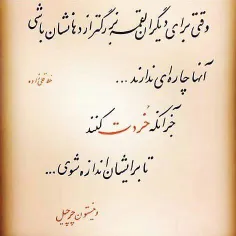 وقتی برای دیگران لقمه بزرگتر از دهانشان باشی
آنها چاره‌ای ندارند ...
جز آنکه خُردت کنند
تا برایشان اندازه شوی ...
وینستون چرچیل